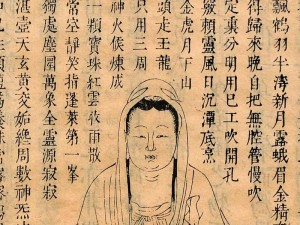 飄鶴羽牛清新月露蛾眉金精
得歸來晚自把無腔管慢吹
定裏分明用巳工吹開孔
竅賴靈風日沉潭底烹
金虎月下山
頭走玉龍
只用三周
神火候煉成
一顆寶珠紅雲夜雨散
常空靜笑指蓬萊第一峯
獨處塵闤萬象全靈源寂寂
湛壺天玄黄交姤總周數神炁